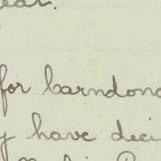 ear.
for barndon
y have deci